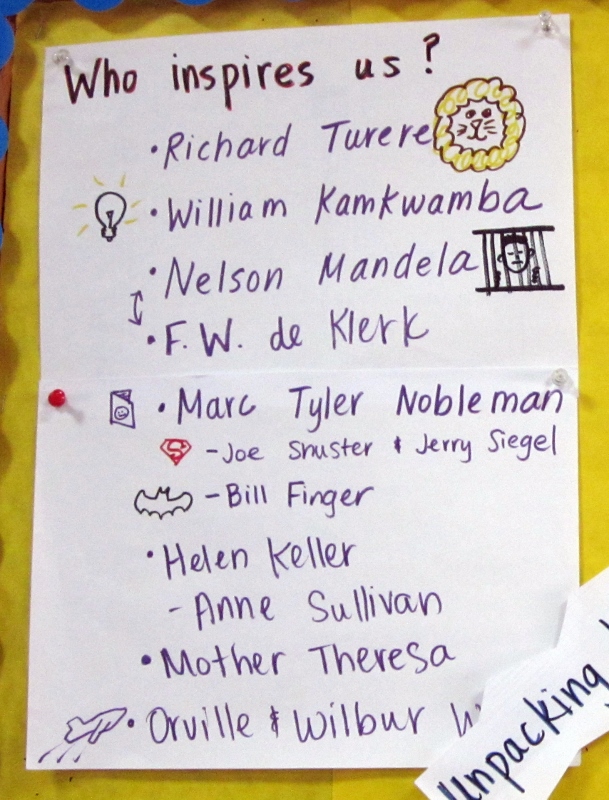 Who inspires us?
• Richard Turere
• William Kamkwamba
• Nelson Mandela
• F. W. de Klerk
• Marc Tyler Nobleman
S - Joe Shuster & Jerry Siegel
- Bill Finger
• Helen Keller
- Anne Sullivan
• Mother Theresa
• Orville & Wilbur
Unpacking